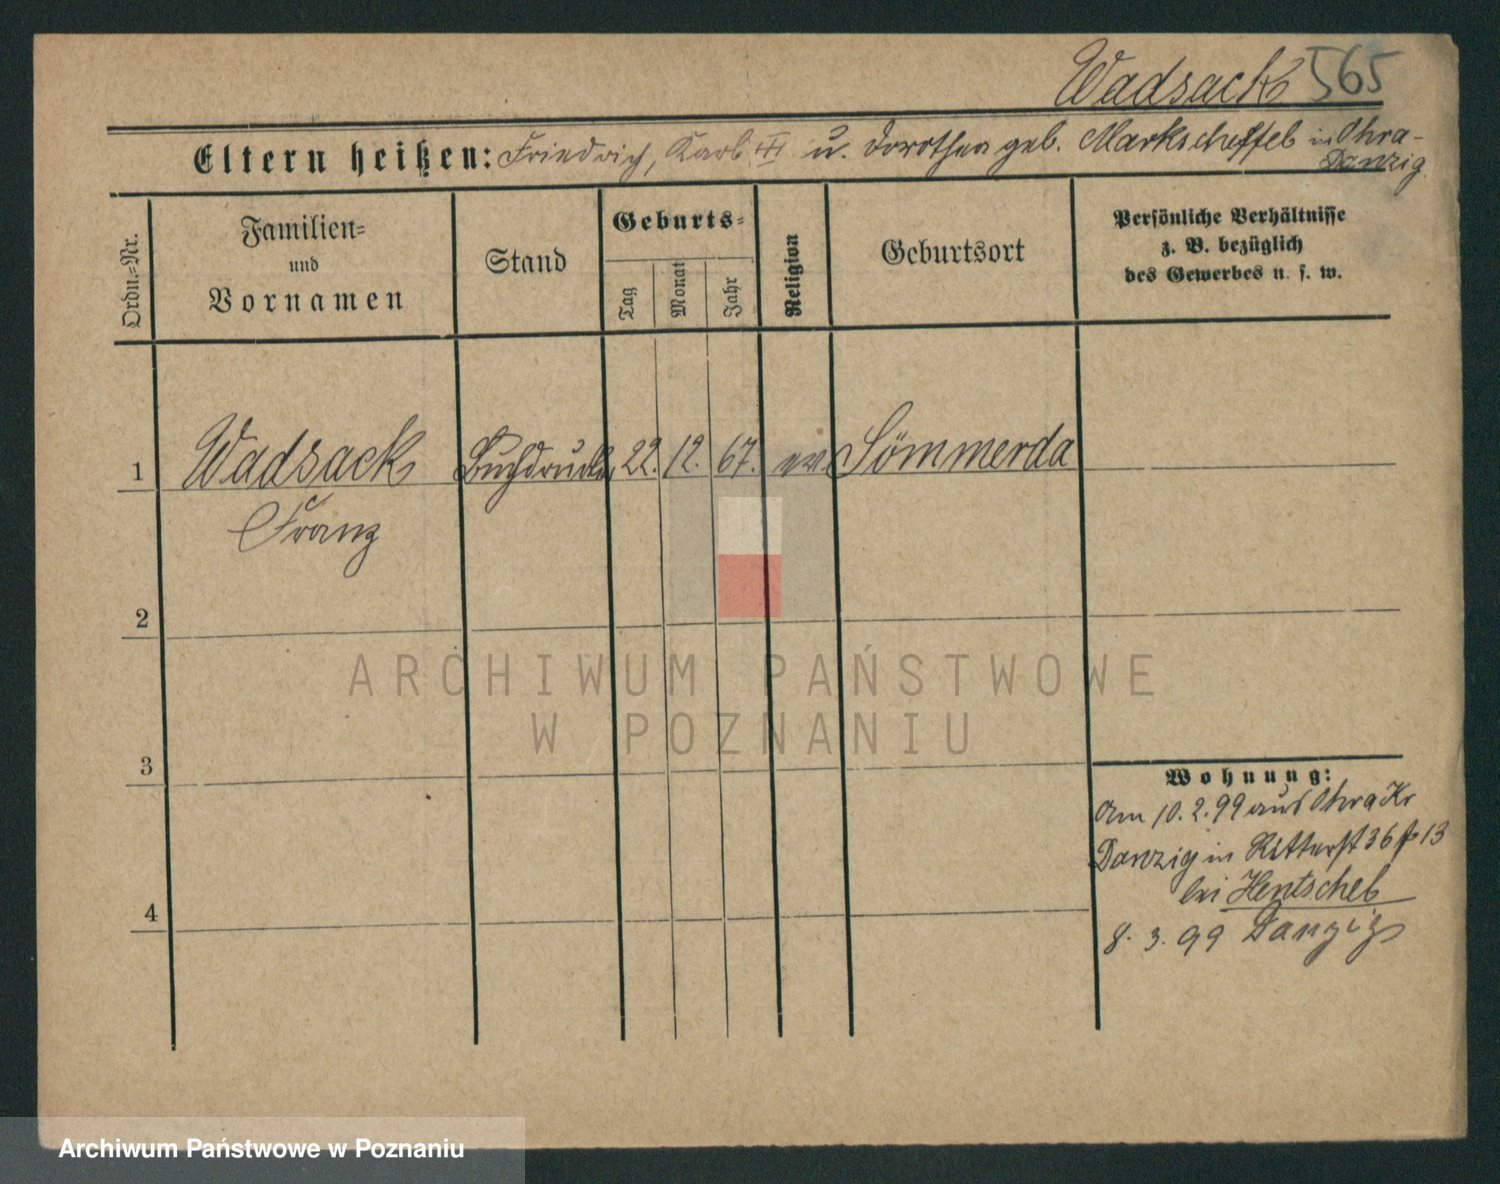 Wadsack 565
Eltern heißen: Friedrich, Karl u. Dorothea geb. Markscheffel in Ohra-
Danzig
Ordn.=Nr.
Familien=
und
Vornamen
Stand
Geburts=
Tag
Monat
Jahr
Religion
Geburtsort
Persönliche Verhältnisse
z. B. bezüglich
des Gewerbes u. s. w.
1 Wadsack Buchdrucker 22. 12. 67. ev. Sömmerda
Franz
2
3
4
ARCHIWUM PAŃSTWOWE
W POZNANIU
Wohnung:
Am 10.2.99 aus Ohra Kr
Danzig in Ritterst 36 13
bei Hentschel
8. 3. 99 Danzig
Archiwum Państwowe w Poznaniu